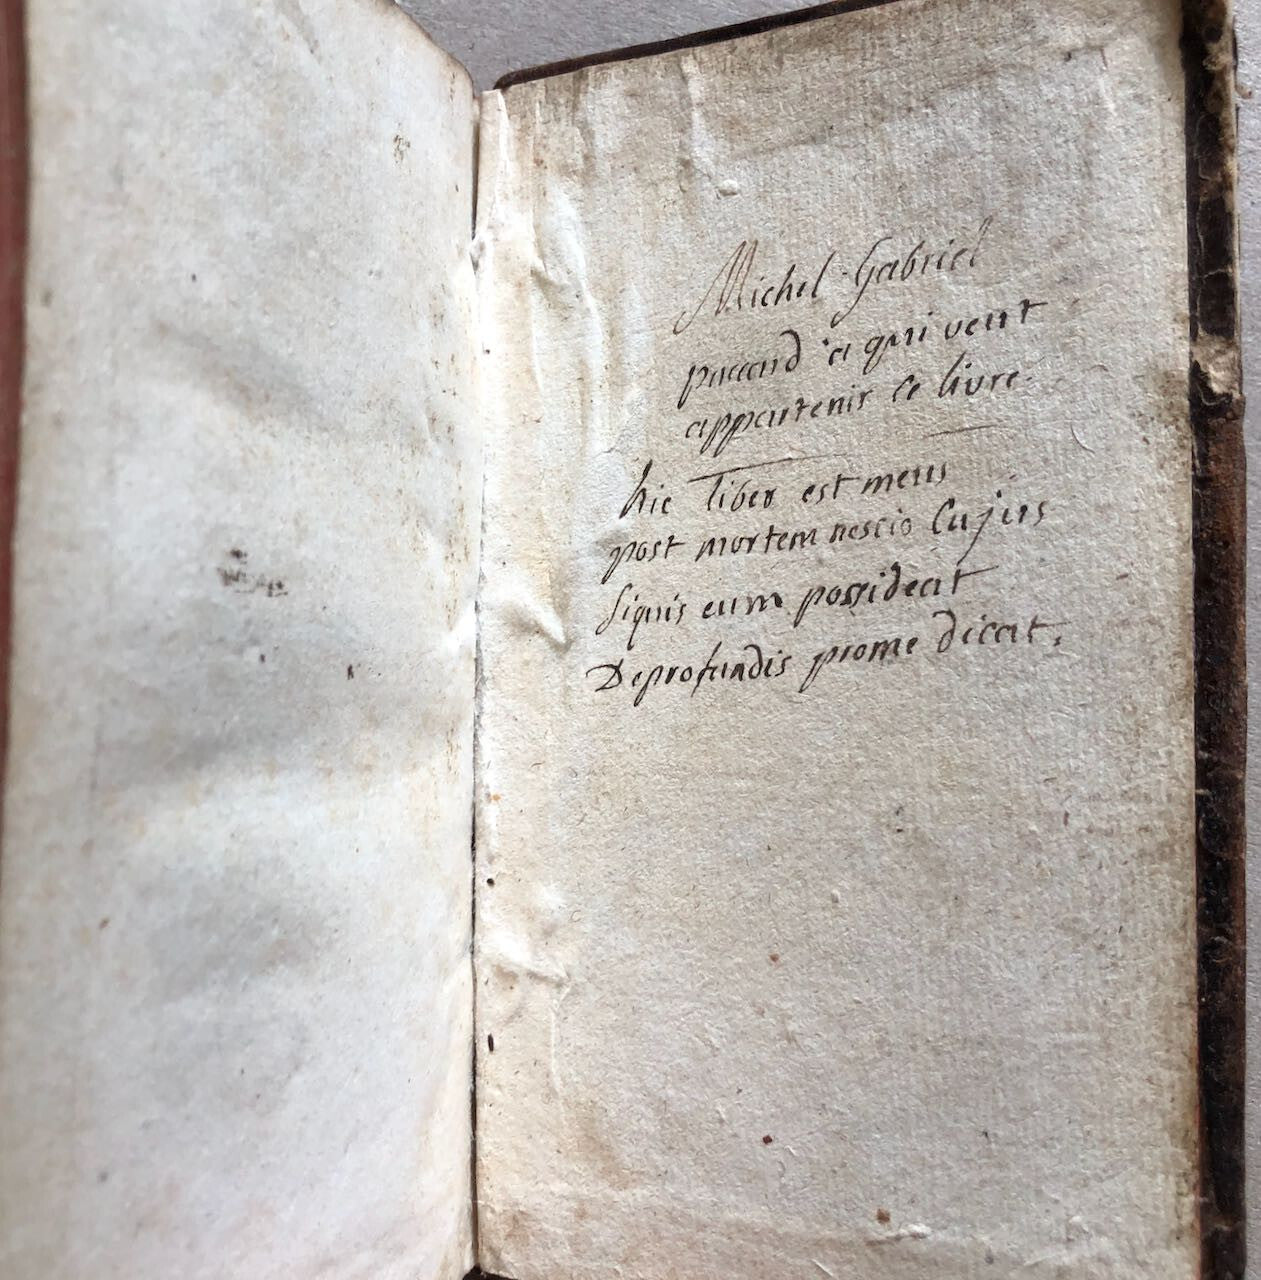 Michel Gabriel
paccard a qui veut
appartenir ce livre.
hic liber est meus
post mortem nescio cujus
siquis eum possideat
Deprofundis prome dicat.